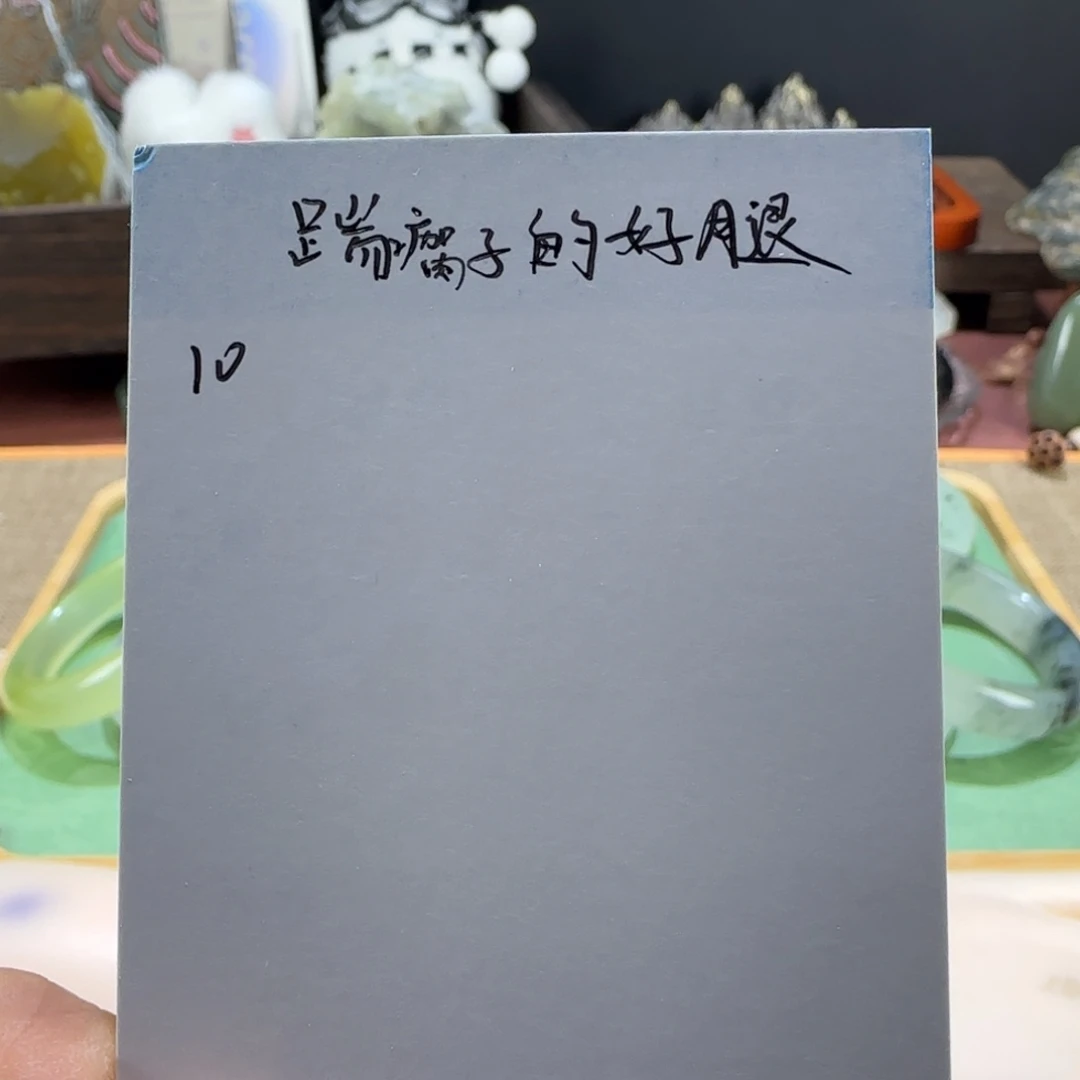 踹瘸子的好腿
10